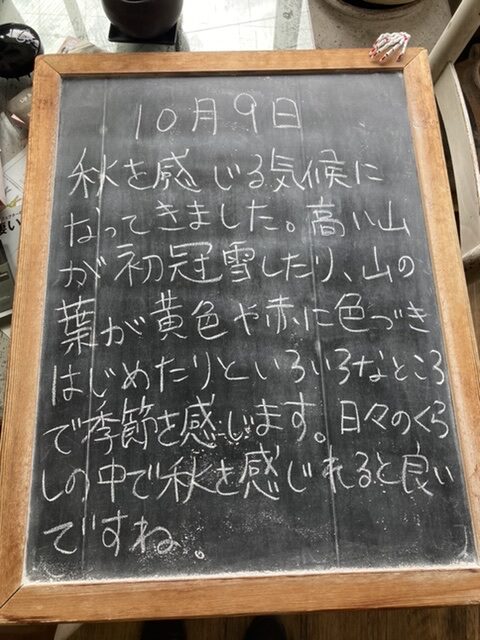 10月9日
秋を感じる気候に
なってきました。高い山
が初冠雪したり、山の
葉が黄色や赤に色づき
はじめたりといろいろなところ
で季節を感じます。日々のくら
しの中で秋を感じれると良い
ですね。